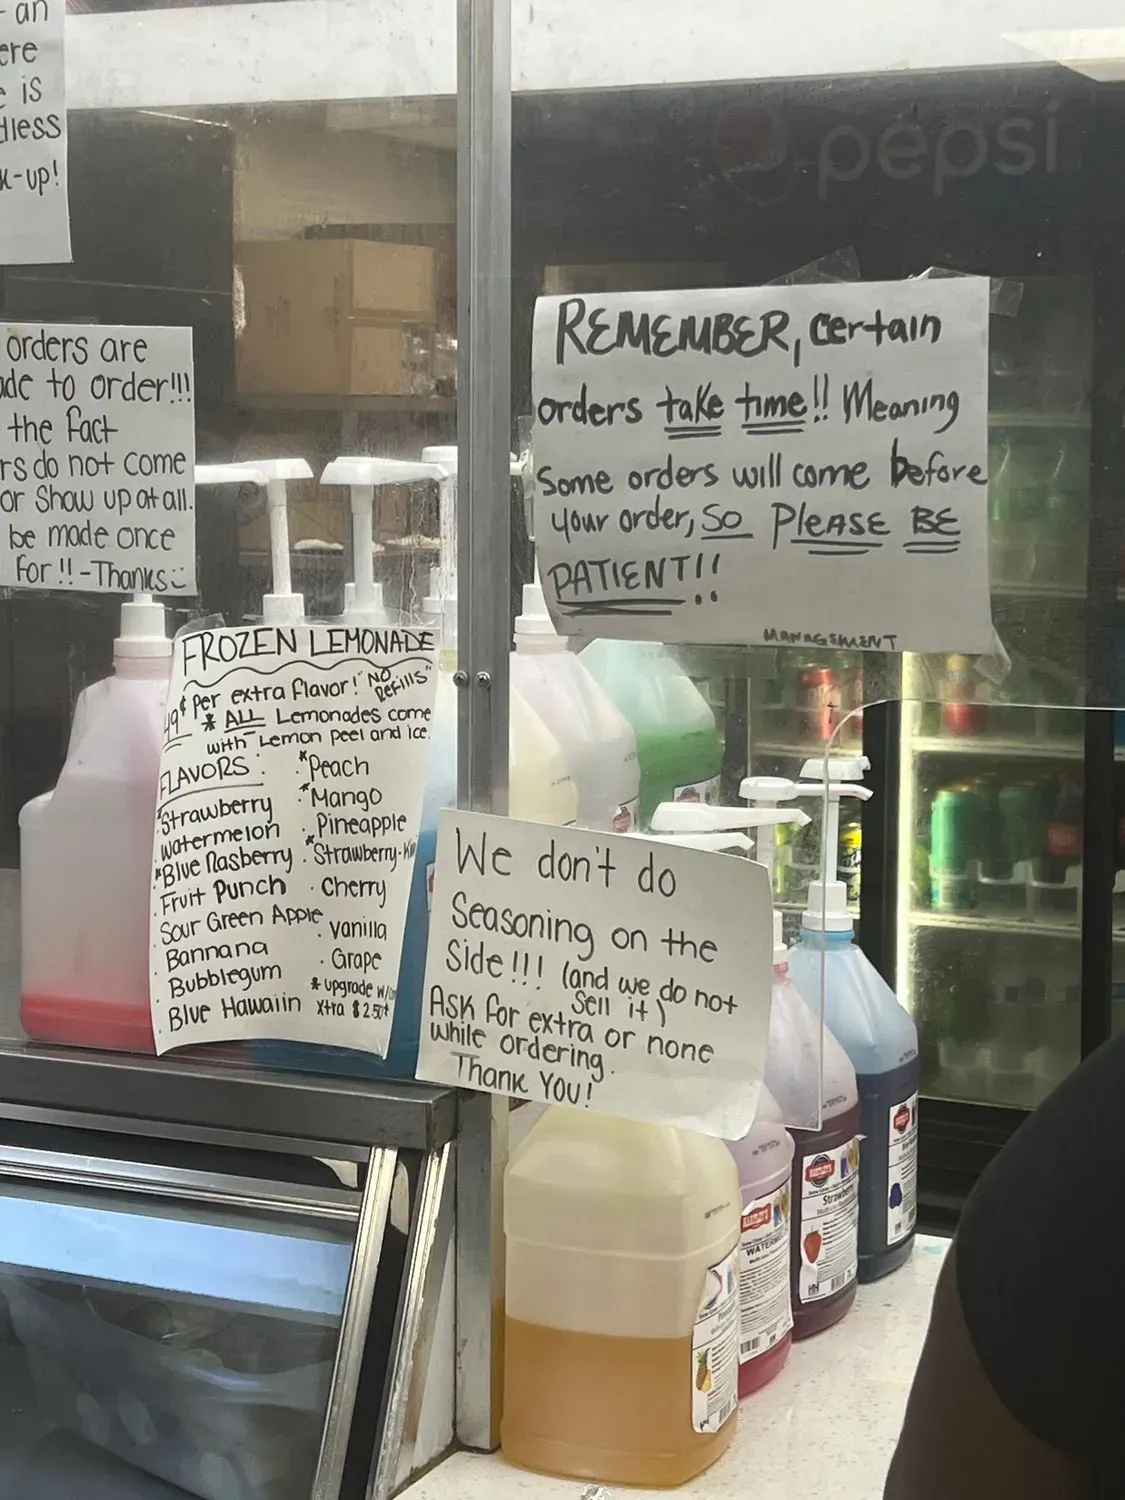 - an
ere
is
dless
k-up!
pepsi
orders are
ade to order!!!
the fact
rs do not come
or show up at all.
be made once
for!! -Thanks
REMEMBER, certain
orders take time!! Meaning
some orders will come before
your order, SO PLEASE BE
PATIENT!!
MANAGEMENT
FROZEN LEMONADE
49¢ per extra flavor! "NO Refills"
* ALL Lemonades come
with Lemon peel and ice
FLAVORS:
* Strawberry
. Watermelon
* Blue Rasberry
. Fruit Punch
. Sour Green Apple
. Bannana
. Bubblegum
. Blue Hawaiin
* Peach
* Mango
. Pineapple
* Strawberry-
. Cherry
. Vanilla
. Grape
* upgrade w/
xtra $2.50+
We don't do
Seasoning on the
Side!!! (and we do not
Sell it)
Ask for extra or none
while ordering.
Thank you!
Strawberry
WATERM